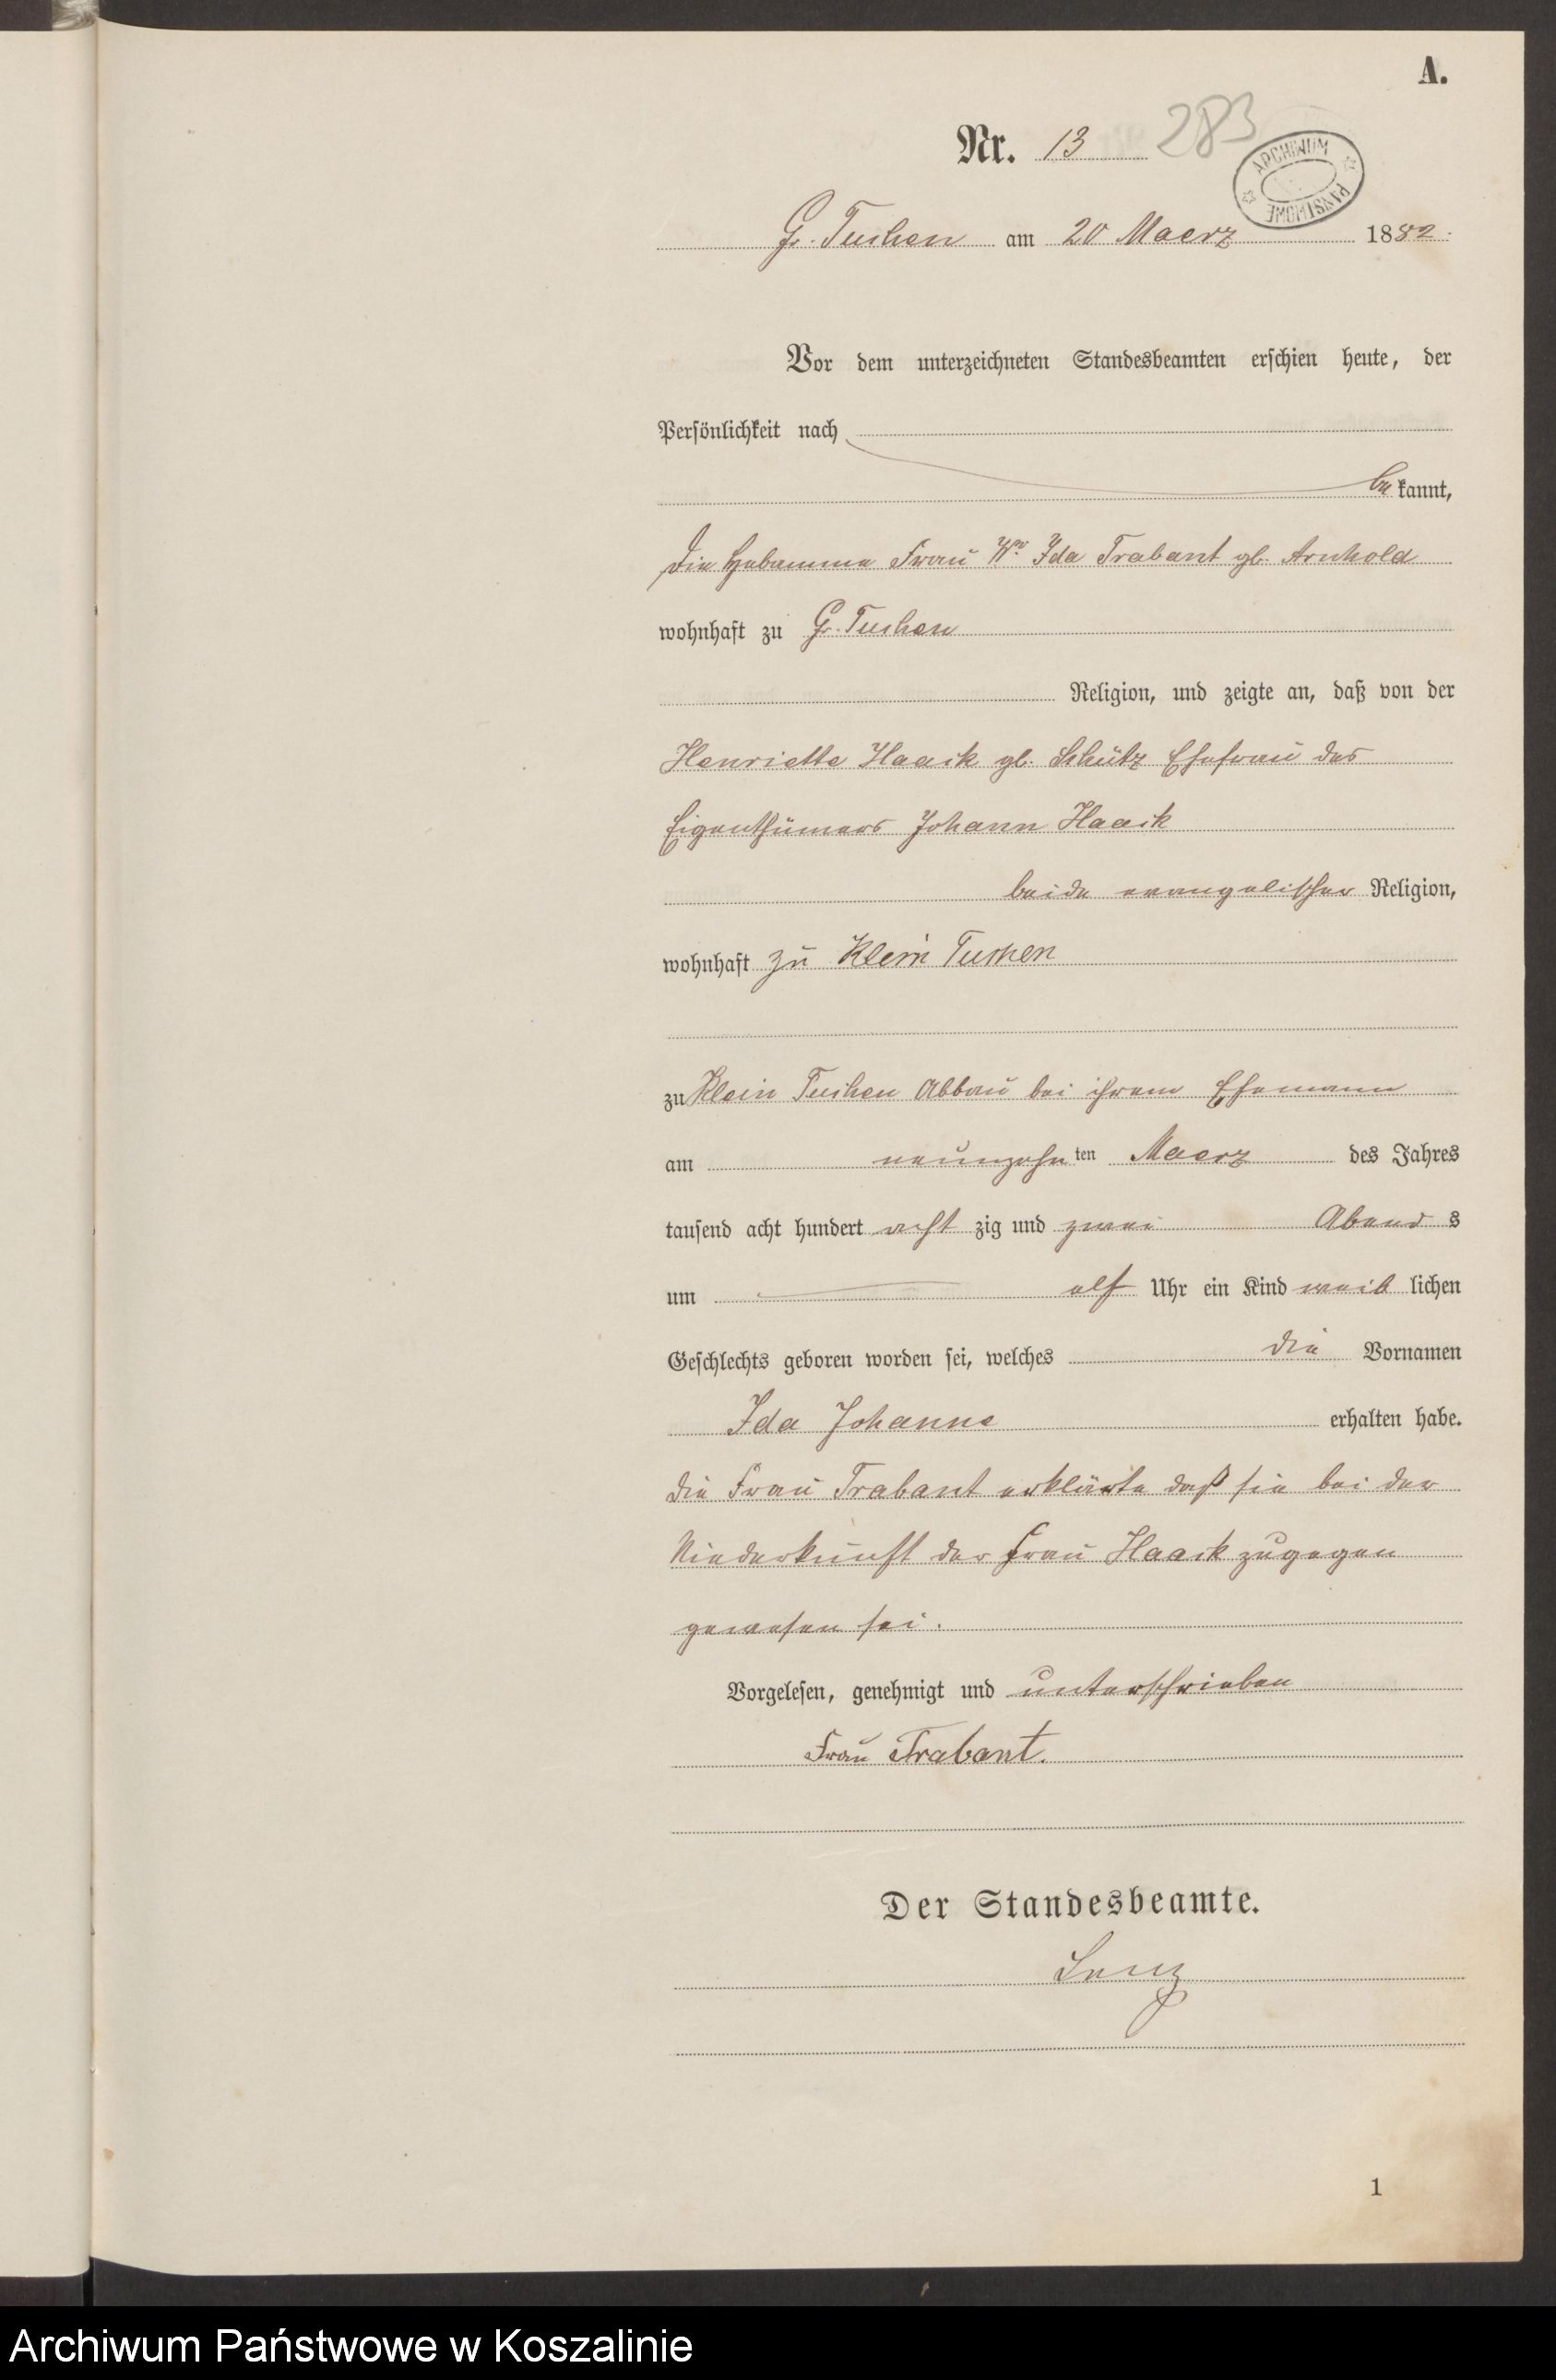 A.
Nr. 13 283
ARCHIWUM PAŃSTWOWE
Gr. Tuchen am 20 Maerz 1882.
Vor dem unterzeichneten Standesbeamten erschien heute, der
Persönlichkeit nach
be kannt,
die Hebamme Frau Ww. Ida Trabant gb. Arnhold
wohnhaft zu Gr. Tuchen
Religion, und zeigte an, daß von der
Henriette Haack gb. Schütz Ehefrau des
Eigenthümers Johann Haack
beide evangelischer Religion,
wohnhaft zu Klein Tuchen
zu Klein Tuchen Abbau bei ihrem Ehemann
am neunzehn ten Maerz des Jahres
tausend acht hundert acht zig und zwei Abend s
um elf Uhr ein Kind weib lichen
Geschlechts geboren worden sei, welches die Vornamen
Ida Johanne erhalten habe.
die Frau Trabant erklärte daß sie bei der
Niederkunft der Frau Haack zugegen
gewesen sei.
Vorgelesen, genehmigt und unterschrieben
Frau Trabant.
Der Standesbeamte.
Lenz
1
Archiwum Państwowe w Koszalinie